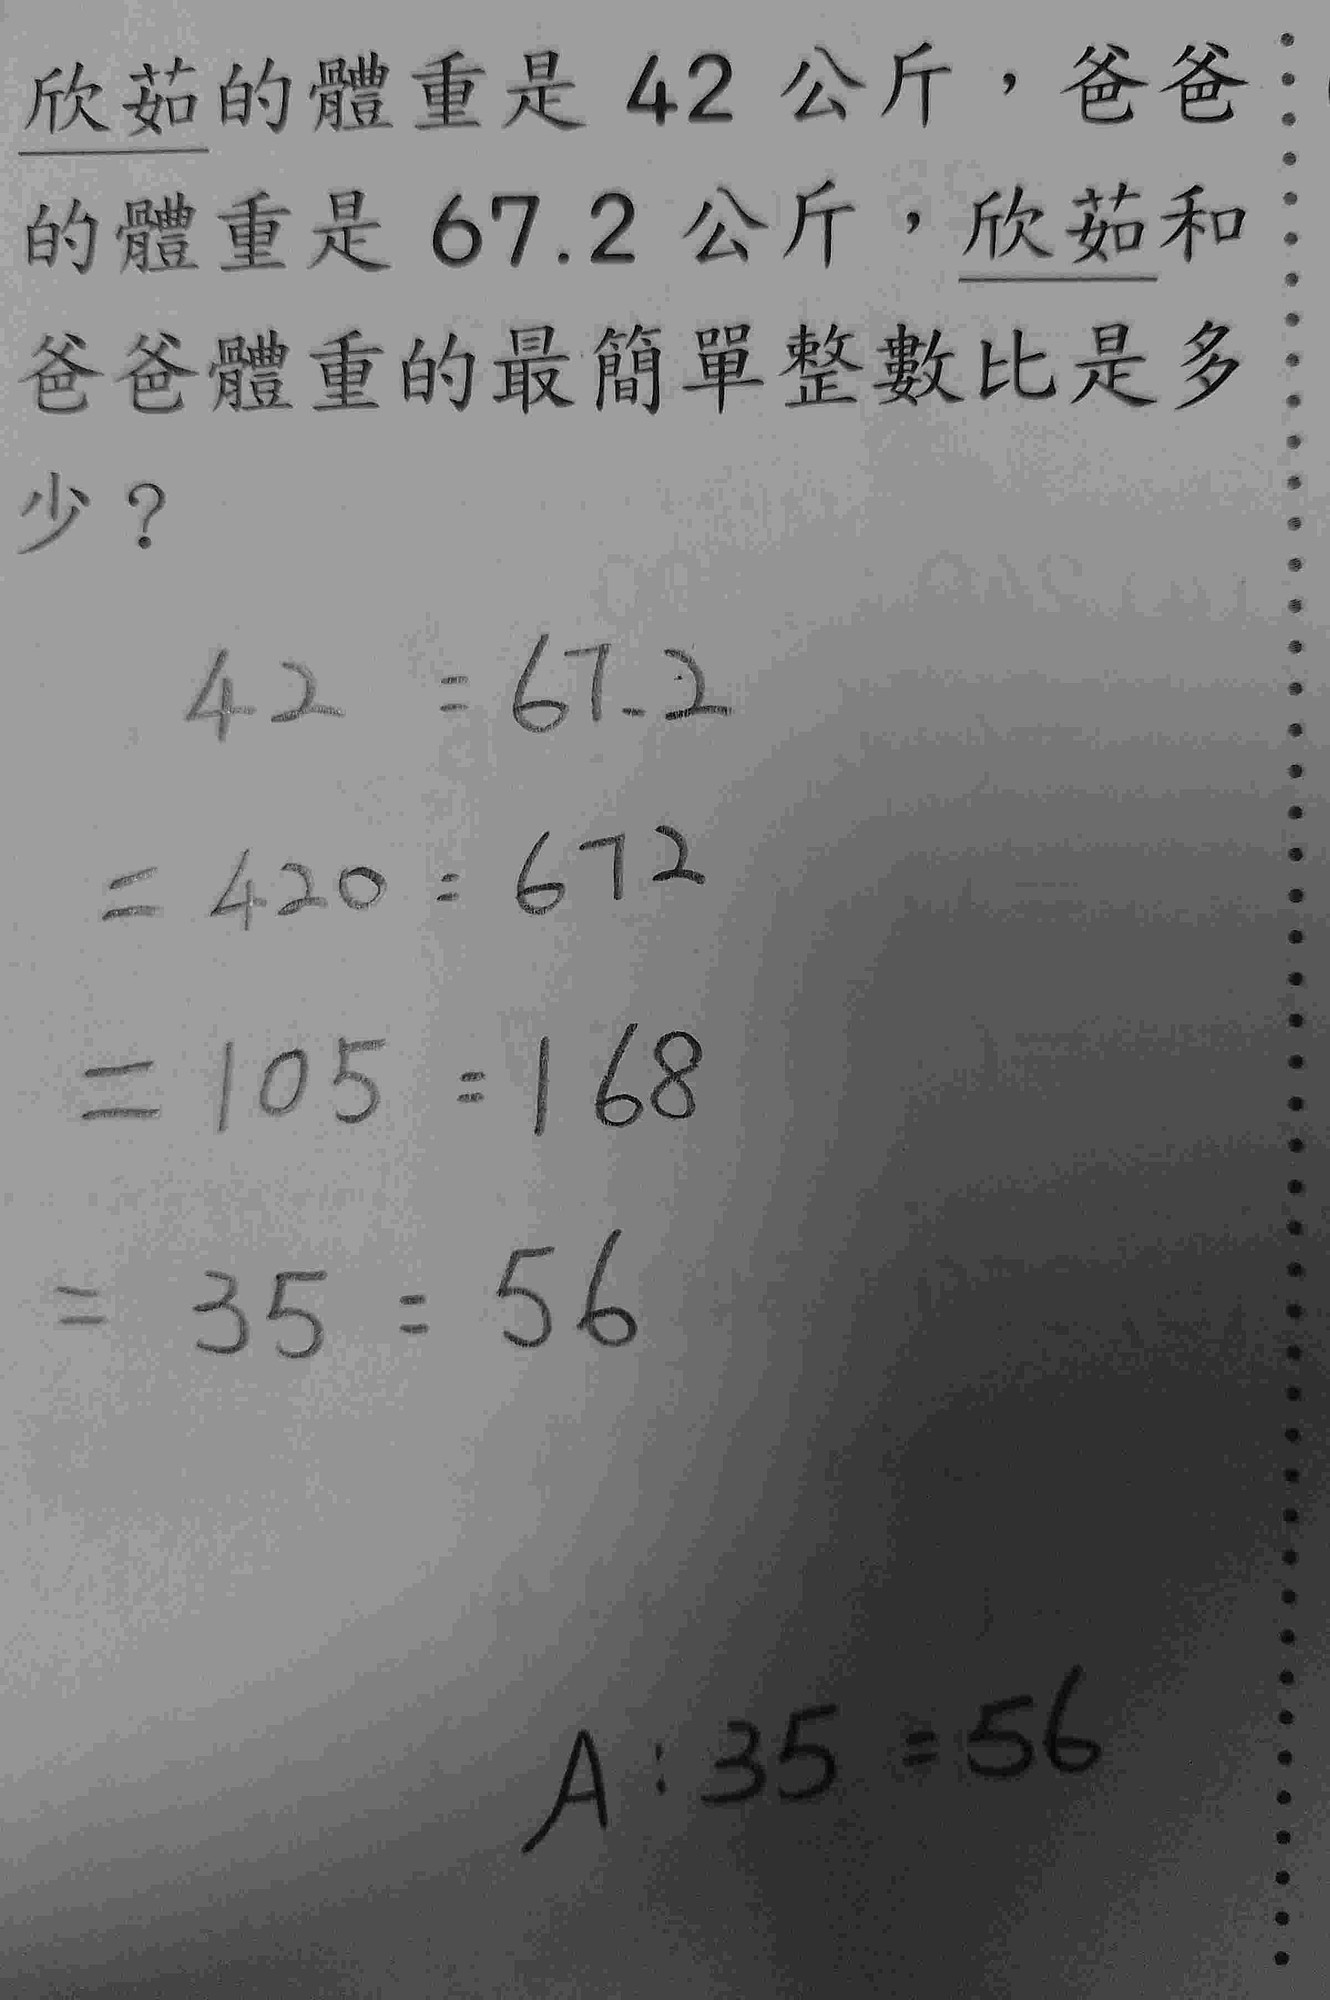 欣茹的體重是 42 公斤，爸爸
的體重是 67.2 公斤，欣茹和
爸爸體重的最簡單整數比是多
少？
42 : 67.2
= 420 : 672
= 105 : 168
= 35 : 56
A : 35 : 56